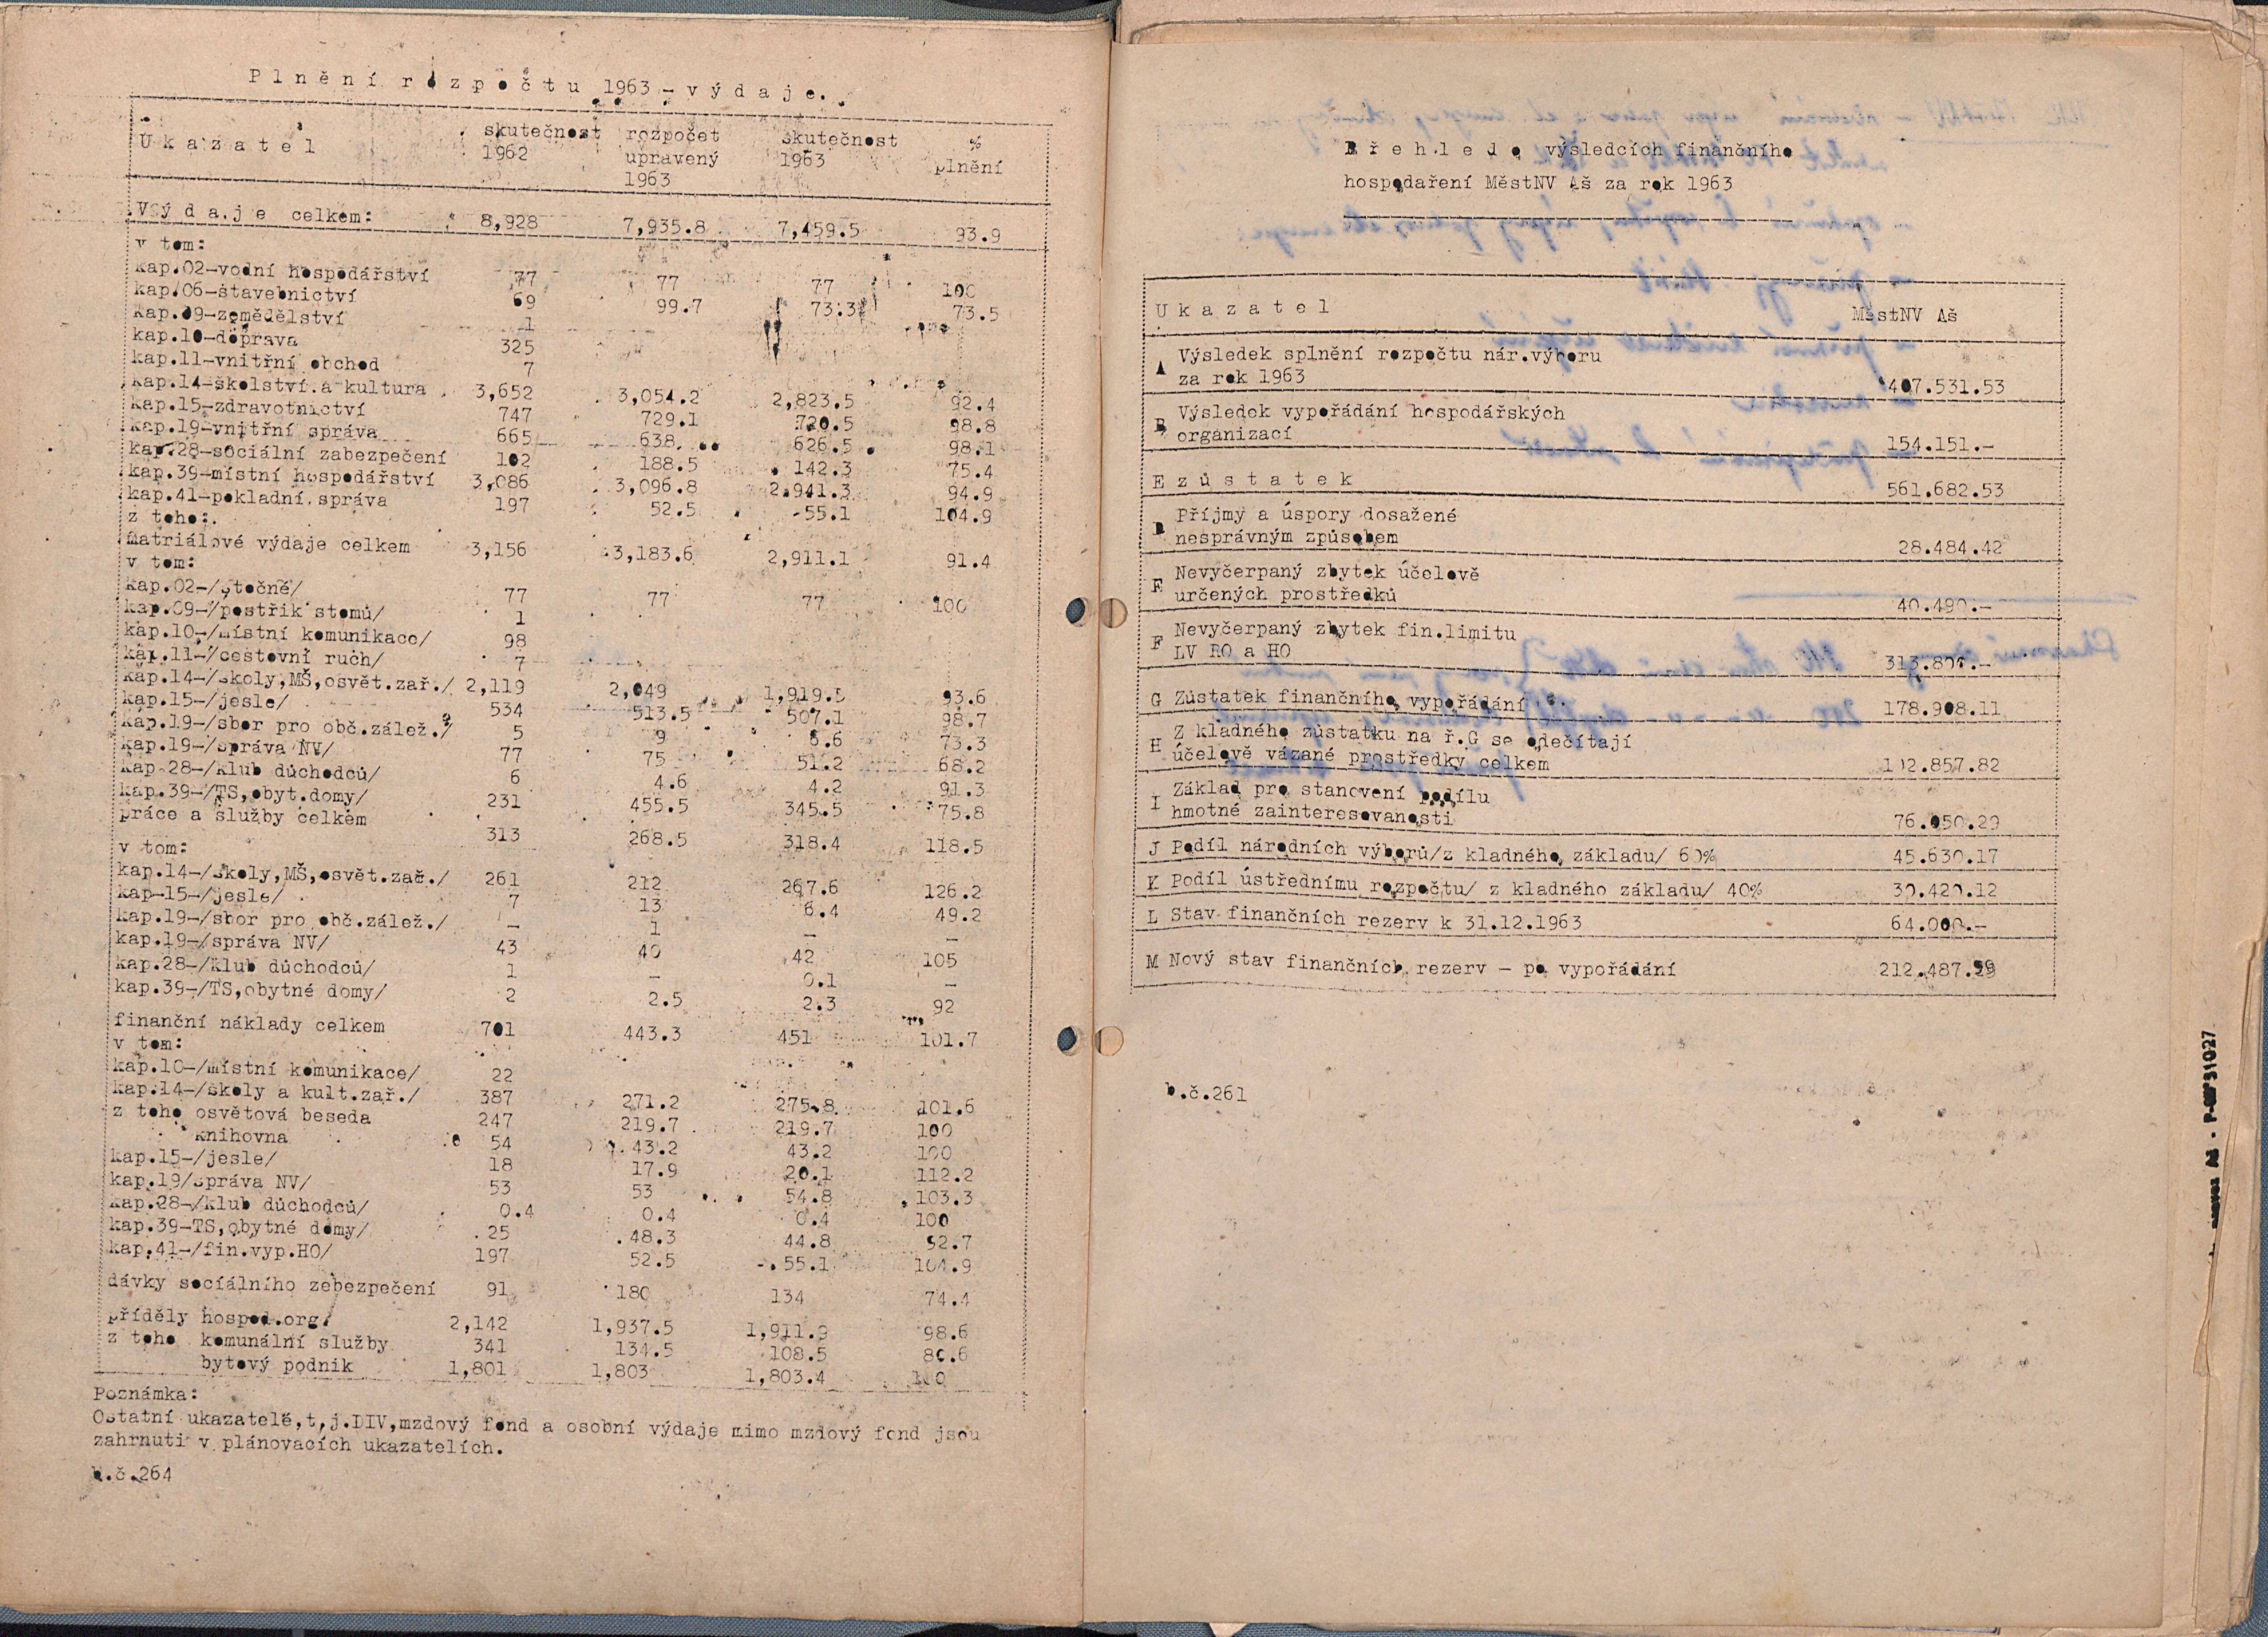 Plnění rozpočtu 1963 – výdaje.
Ukazatel skutečnost 1962 rozpočet upravený 1963 skutečnost 1963 % plnění
Výdaje celkem: 8,928 7,935.8 7,459.5 93.9
v tom:
kap.02-vodní hospodářství 77 77 77 100
kap.06-stavebnictví 69 99.7 73.3 73.5
kap.09-zemědělství 1
kap.10-doprava 325
kap.11-vnitřní obchod 7
kap.14-školství a kultura 3,652 3,054.2 2,823.5 92.4
kap.15-zdravotnictví 747 729.1 720.5 98.8
kap.19-vnitřní správa 665 638 626.5 98.1
kap.28-sociální zabezpečení 102 188.5 142.3 75.4
kap.39-místní hospodářství 3,086 3,096.8 2,941.3 94.9
kap.41-pokladní správa 197 52.5 -55.1 104.9
z toho:
matriálové výdaje celkem 3,156 3,183.6 2,911.1 91.4
v tom:
kap.02-/stočné/ 77 77 77 100
kap.09-/postřik stomů/ 1
kap.10-/místní komunikace/ 98
kap.11-/cestovní ruch/ 7
kap.14-/školy,MŠ,osvět.zař./ 2,119 2,049 1,919.5 93.6
kap.15-/jesle/ 534 513.5 507.1 98.7
kap.19-/sbor pro obč.zálež./ 5 9 6.6 73.3
kap.19-/správa NV/ 77 75 51.2 68.2
kap-28-/klub důchodců/ 6 4.6 4.2 91.3
kap.39-/TS,obyt.domy/ 231 455.5 345.5 75.8
práce a služby celkem 313 268.5 318.4 118.5
v tom:
kap.14-/školy,MŠ,osvět.zař./ 261 212 267.6 126.2
kap-15-/jesle/ 7 13 6.4 49.2
kap.19-/sbor pro obč.zálež./ – 1 – –
kap.19-/správa NV/ 43 40 42 105
kap.28-/klub důchodců/ 1 – 0.1 –
kap.39-/TS,obytné domy/ 2 2.5 2.3 92
finanční náklady celkem 701 443.3 451 101.7
v tom:
kap.10-/místní komunikace/ 22
kap.14-/školy a kult.zař./ 387 271.2 275.8 101.6
z toho osvětová beseda 247 219.7 219.7 100
knihovna 54 43.2 43.2 100
kap.15-/jesle/ 18 17.9 20.1 112.2
kap.19/správa NV/ 53 53 54.8 103.3
kap.28-/klub důchodců/ 0.4 0.4 0.4 100
kap.39-TS,obytné domy/ 25 48.3 44.8 92.7
kap.41-/fin.vyp.HO/ 197 52.5 -.55.1 104.9
dávky socíálního zebezpečení 91 180 134 74.4
příděly hospod.org. 2,142 1,937.5 1,911.9 98.6
z toho komunální služby 341 134.5 108.5 80.6
bytový podnik 1,801 1,803 1,803.4 100
Poznámka:
Ostatní ukazatelé,t,j.DIV,mzdový fond a osobní výdaje mimo mzdový fond jsou
zahrnuti v plánovacích ukazatelích.
b.č.264
Přehled o výsledcích finančního
hospodaření MěstNV Aš za rok 1963
Ukazatel MěstNV Aš
A Výsledek splnění rozpočtu nár.výboru
za rok 1963 407.531.53
B Výsledek vypořádání hospodářských
organizací 154.151.-
E zůstatek 561.682.53
D Příjmy a úspory dosažené
nesprávným způsobem 28.484.42
E Nevyčerpaný zbytek účelově
určených prostředků 40.490.-
F Nevyčerpaný zbytek fin.limitu
LV RO a HO 313.800.-
G Zůstatek finančního vypořádání 178.908.11
H Z kladného zůstatku na ř.G se odečítají
účelově vázané prostředky celkem 102.857.82
I Základ pro stanovení podílu
hmotné zainteresovanosti 76.050.29
J Podíl národních výborů/z kladného základu/ 60% 45.630.17
K Podíl ústřednímu rozpočtu/ z kladného základu/ 40% 30.420.12
L Stav finančních rezerv k 31.12.1963 64.000.-
M Nový stav finančních rezerv – po vypořádání 212.487.99
b.č.261